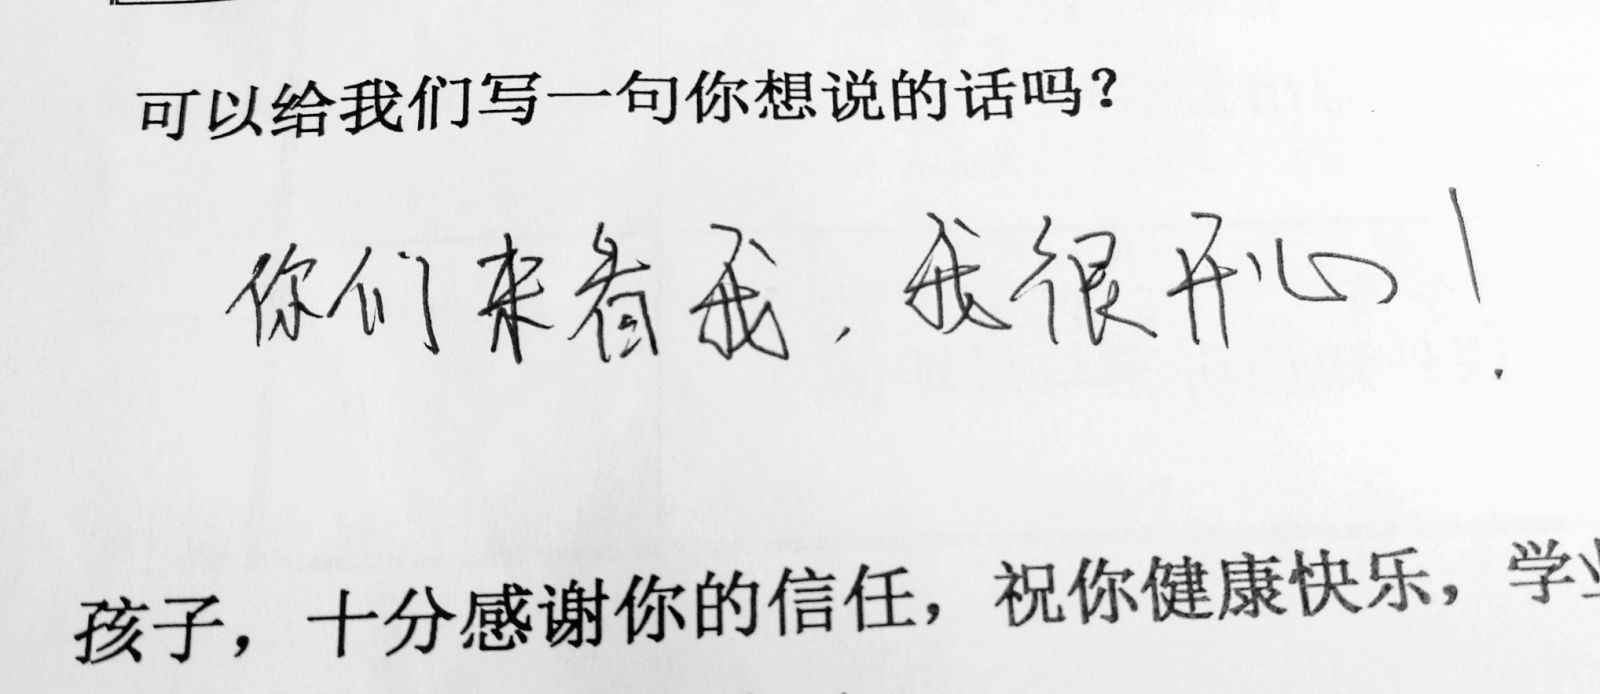 可以给我们写一句你想说的话吗？
你们来看我，我很开心！
孩子，十分感谢你的信任，祝你健康快乐，学业